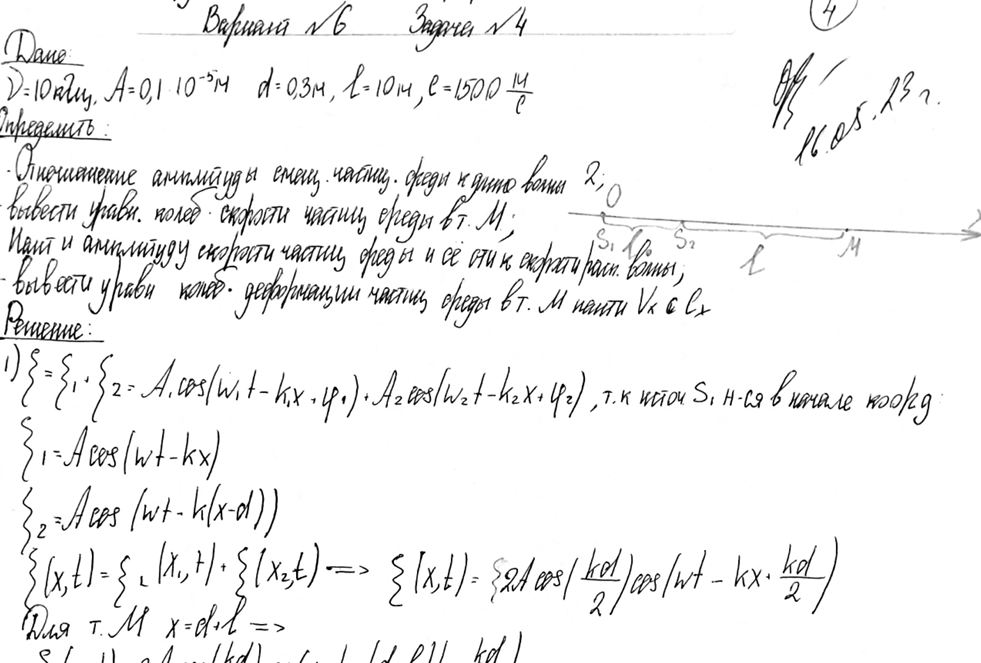 Вариант №6 Задача №4
4
Дано:
ν=10 кГц, A=0,1·10⁻⁵м d=0,3м, l=10м, c=1500 м/с
16.05.23 г.
Определить:
- Отношение амплитуды смещ. частиц. среды к длине волны
2;
- вывести уравн. колеб. скорости частиц среды в т. М;
O
S₁ S₂ l M
Найти амплитуду скорости частиц среды и её к скорости расп. волны;
- вывести уравн колеб. деформации частиц среды в т. М найти Vx
Решение:
1) ξ = ξ₁ + ξ₂ = A₁cos(w₁t-k₁x+φ₁)+A₂cos(w₂t-k₂x+φ₂), т.к источ S₁ н-ся в начале коорд:
ξ₁=Acos(wt-kx)
ξ₂=Acos(wt-k(x-d))
ξ(x,t)=ξ₁(x₁,t)+ξ(x₂,t) => ξ(x,t)= 2Acos(kd/2)cos(wt-kx+kd/2)
Для т. М x=d+l =>